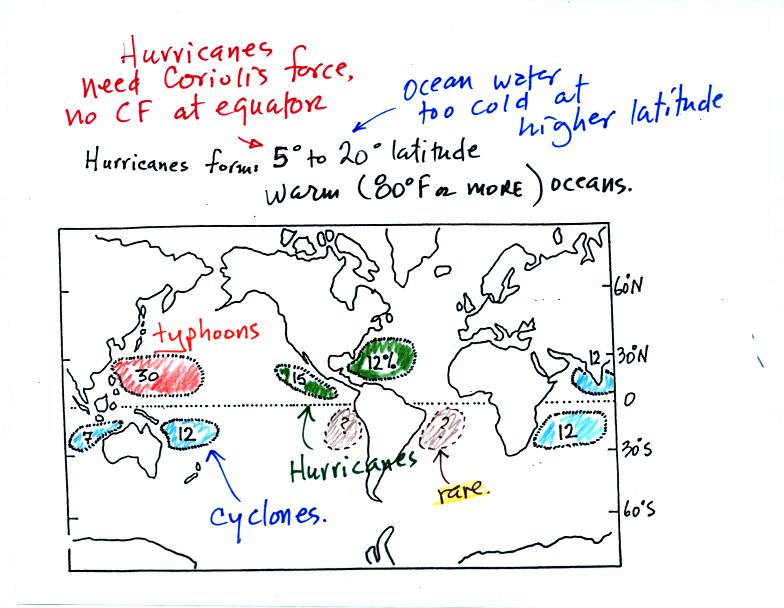 Hurricanes
need Coriolis force,
no CF at equator
ocean water
too cold at
higher latitude
Hurricanes form: 5° to 20° latitude
warm (80°F or MORE) oceans.
60°N
typhoons
30
15
12%
12
30°N
0
7
12
?
?
12
30°S
Hurricanes
rare.
cyclones.
60°S